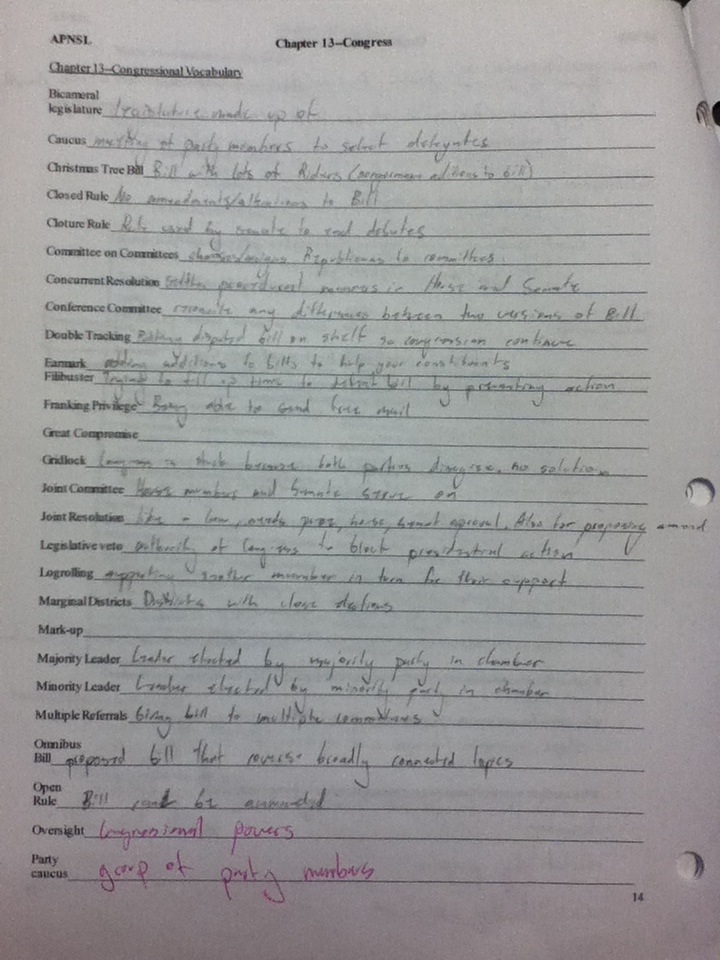 APNSL
Chapter 13--Congress
Chapter 13--Congressional Vocabulary
Bicameral
legislature legislature made up of
Caucus meeting of party members to select delegates
Christmas Tree Bill Bill with lots of Riders ( to bill)
Closed Rule No amendments/alterations to Bill
Cloture Rule Rule used by senate to end debates
Committee on Committees Republicans to committees
Concurrent Resolution settles procedural in House and Senate
Conference Committee any differences between two versions of Bill
Double Tracking disputed bill on shelf so continue
Earmark adding additions to bills to help your constituents
Filibuster Trying to fill up time to bill by preventing action
Franking Privilege Being able to send free mail
Great Compromise
Gridlock Congress is stuck because both parties disagree, no solution
Joint Committee House members and Senate serve on
Joint Resolution like a law, needs prez, house, Also for proposing amend
Legislative veto authority of Congress to block presidential action
Logrolling supporting another in turn for their support
Marginal Districts Districts with close elections
Mark-up
Majority Leader Leader elected by majority party in chamber
Minority Leader Leader elected by minority party in chamber
Multiple Referrals Giving bill to multiple committees
Omnibus
Bill proposed bill that broadly connected topics
Open
Rule Bill be
Oversight Congressional powers
Party
caucus group of party members
14